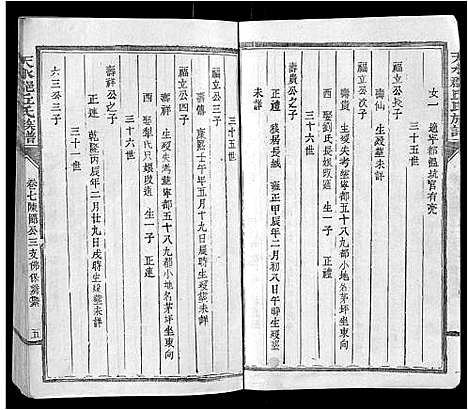 天水郡丘氏族譜
女一 適平都
三十五世
福立公長子
壽仙 生歿失考
福立公次子
壽貴 生歿失考葬寧都五十八九都小地名茅坪坐東向
西 娶劉氏長娘改適 生一子 正禮
三十六世
壽貴公之子
正禮 移居長
雍正甲辰年二月初八日午時生歿葬未詳
三十五世
福立公三子
壽傳 康熙壬午年五月十九日辰時生歿葬未詳
福立公四子
生歿失考葬寧都五十八九都小地名茅坪坐東向
西 娶
氏只娘改適 生一子 正連
三十六世
壽祥公之子
正連 乾隆丙辰年二月廿九日戌時生歿葬未詳
三十一世
六三公三子
天水郡丘氏族譜
卷七陳郎公三支佛保
五